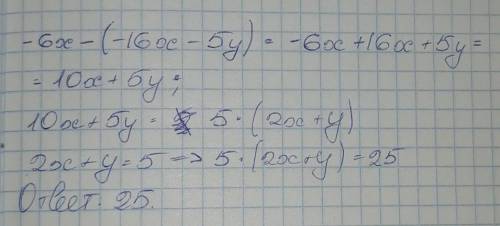 -6x-(-16x-5y) = -6x+16x+5y=
= 10x+5y;
10x+5y= 5·(2x+y)
2x+y=5 -> 5·(2x+y)=25
Ответ: 25.